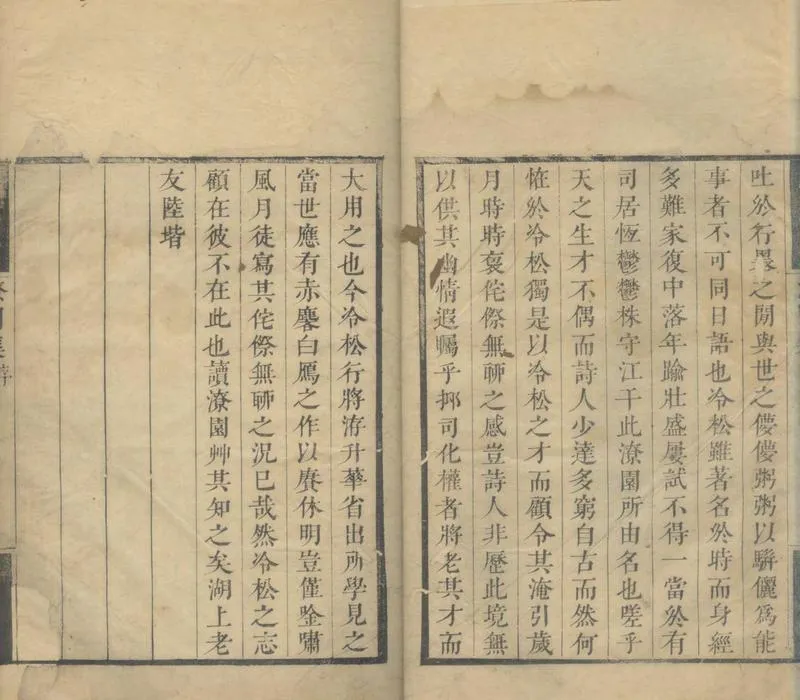 吐於行墨之閒與世之儚儚粥粥以騈儷爲能
事者不可同日語也冷松雖著名於時而身經
多難家復中落年踰壯盛屢試不得一當於有
司居恆鬱鬱株守江干此潦園所由名也嗟乎
天之生才不偶而詩人少達多窮自古而然何
恠於冷松獨是以冷松之才而顧令其淹引歲
月時時裒侘傺無聊之感豈詩人非歷此境無
以供其幽情遐矚乎抑司化權者將老其才而
大用之也今冷松行將洊升華省出所學見之
當世應有赤麐白鴈之作以賡休明豈僅唫嘯
風月徒寫其侘傺無聊之況已哉然冷松之志
顧在彼不在此也讀潦園艸其知之矣湖上老
友陸堦